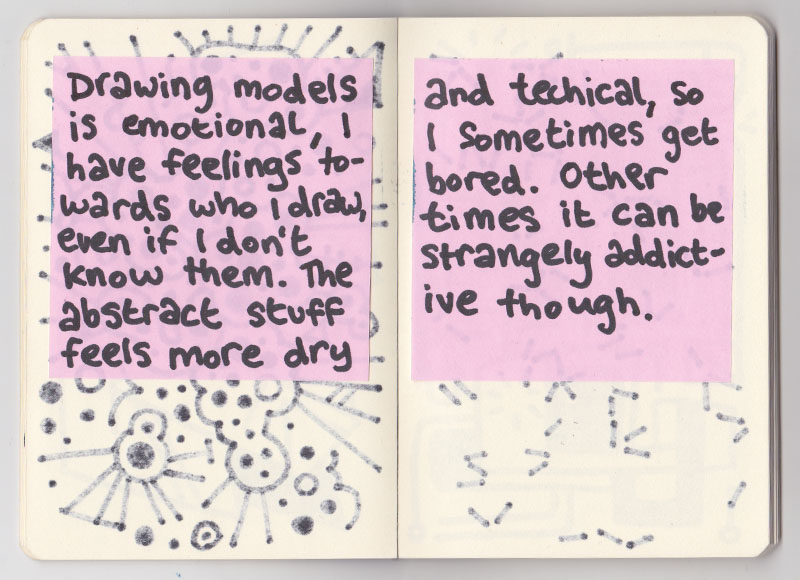 Drawing models
is emotional, I
have feelings to-
wards who I draw,
even if I don't
know them. The
abstract stuff
feels more dry
and techical, so
I sometimes get
bored. Other
times it can be
strangely addict-
ive though.